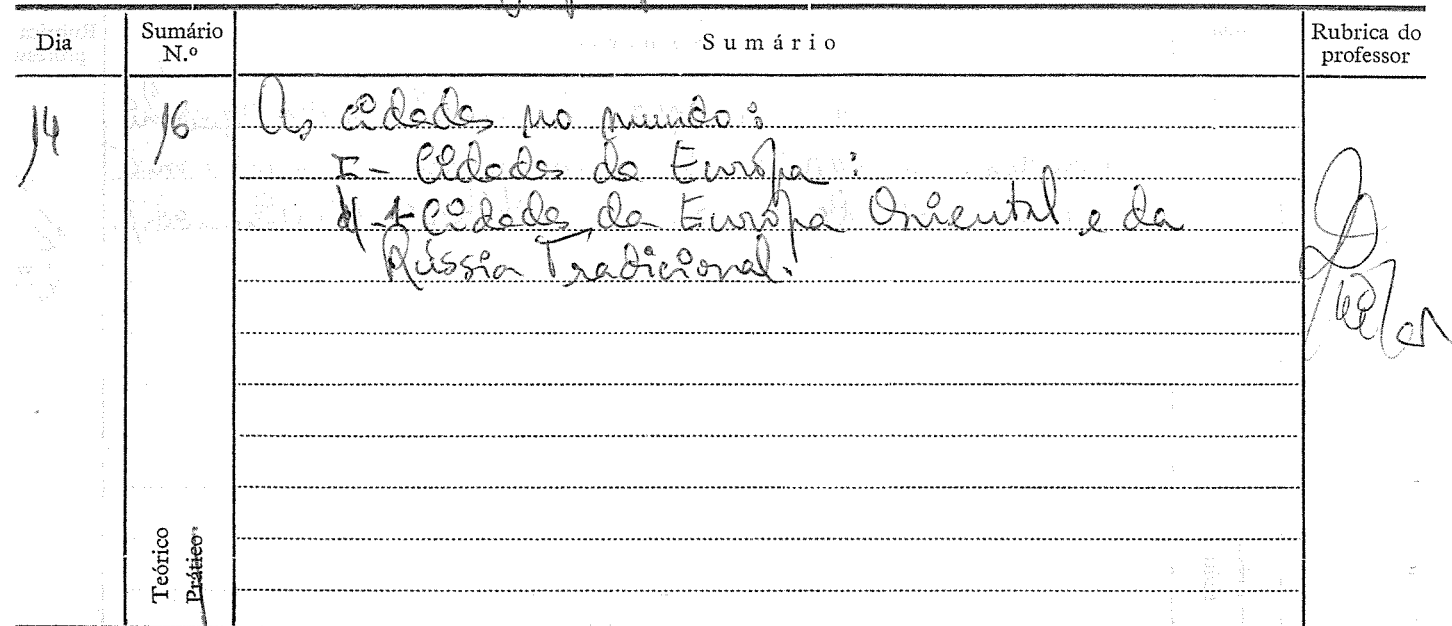 Dia Sumário N.º Sumário Rubrica do professor
14 16 As cidades no mundo:
I - Cidades da Europa:
d - Cidades da Europa Oriental e da
Rússia Tradicional.
Teórico
Prático